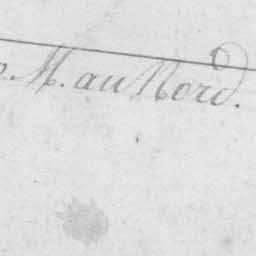 M. au Nord.